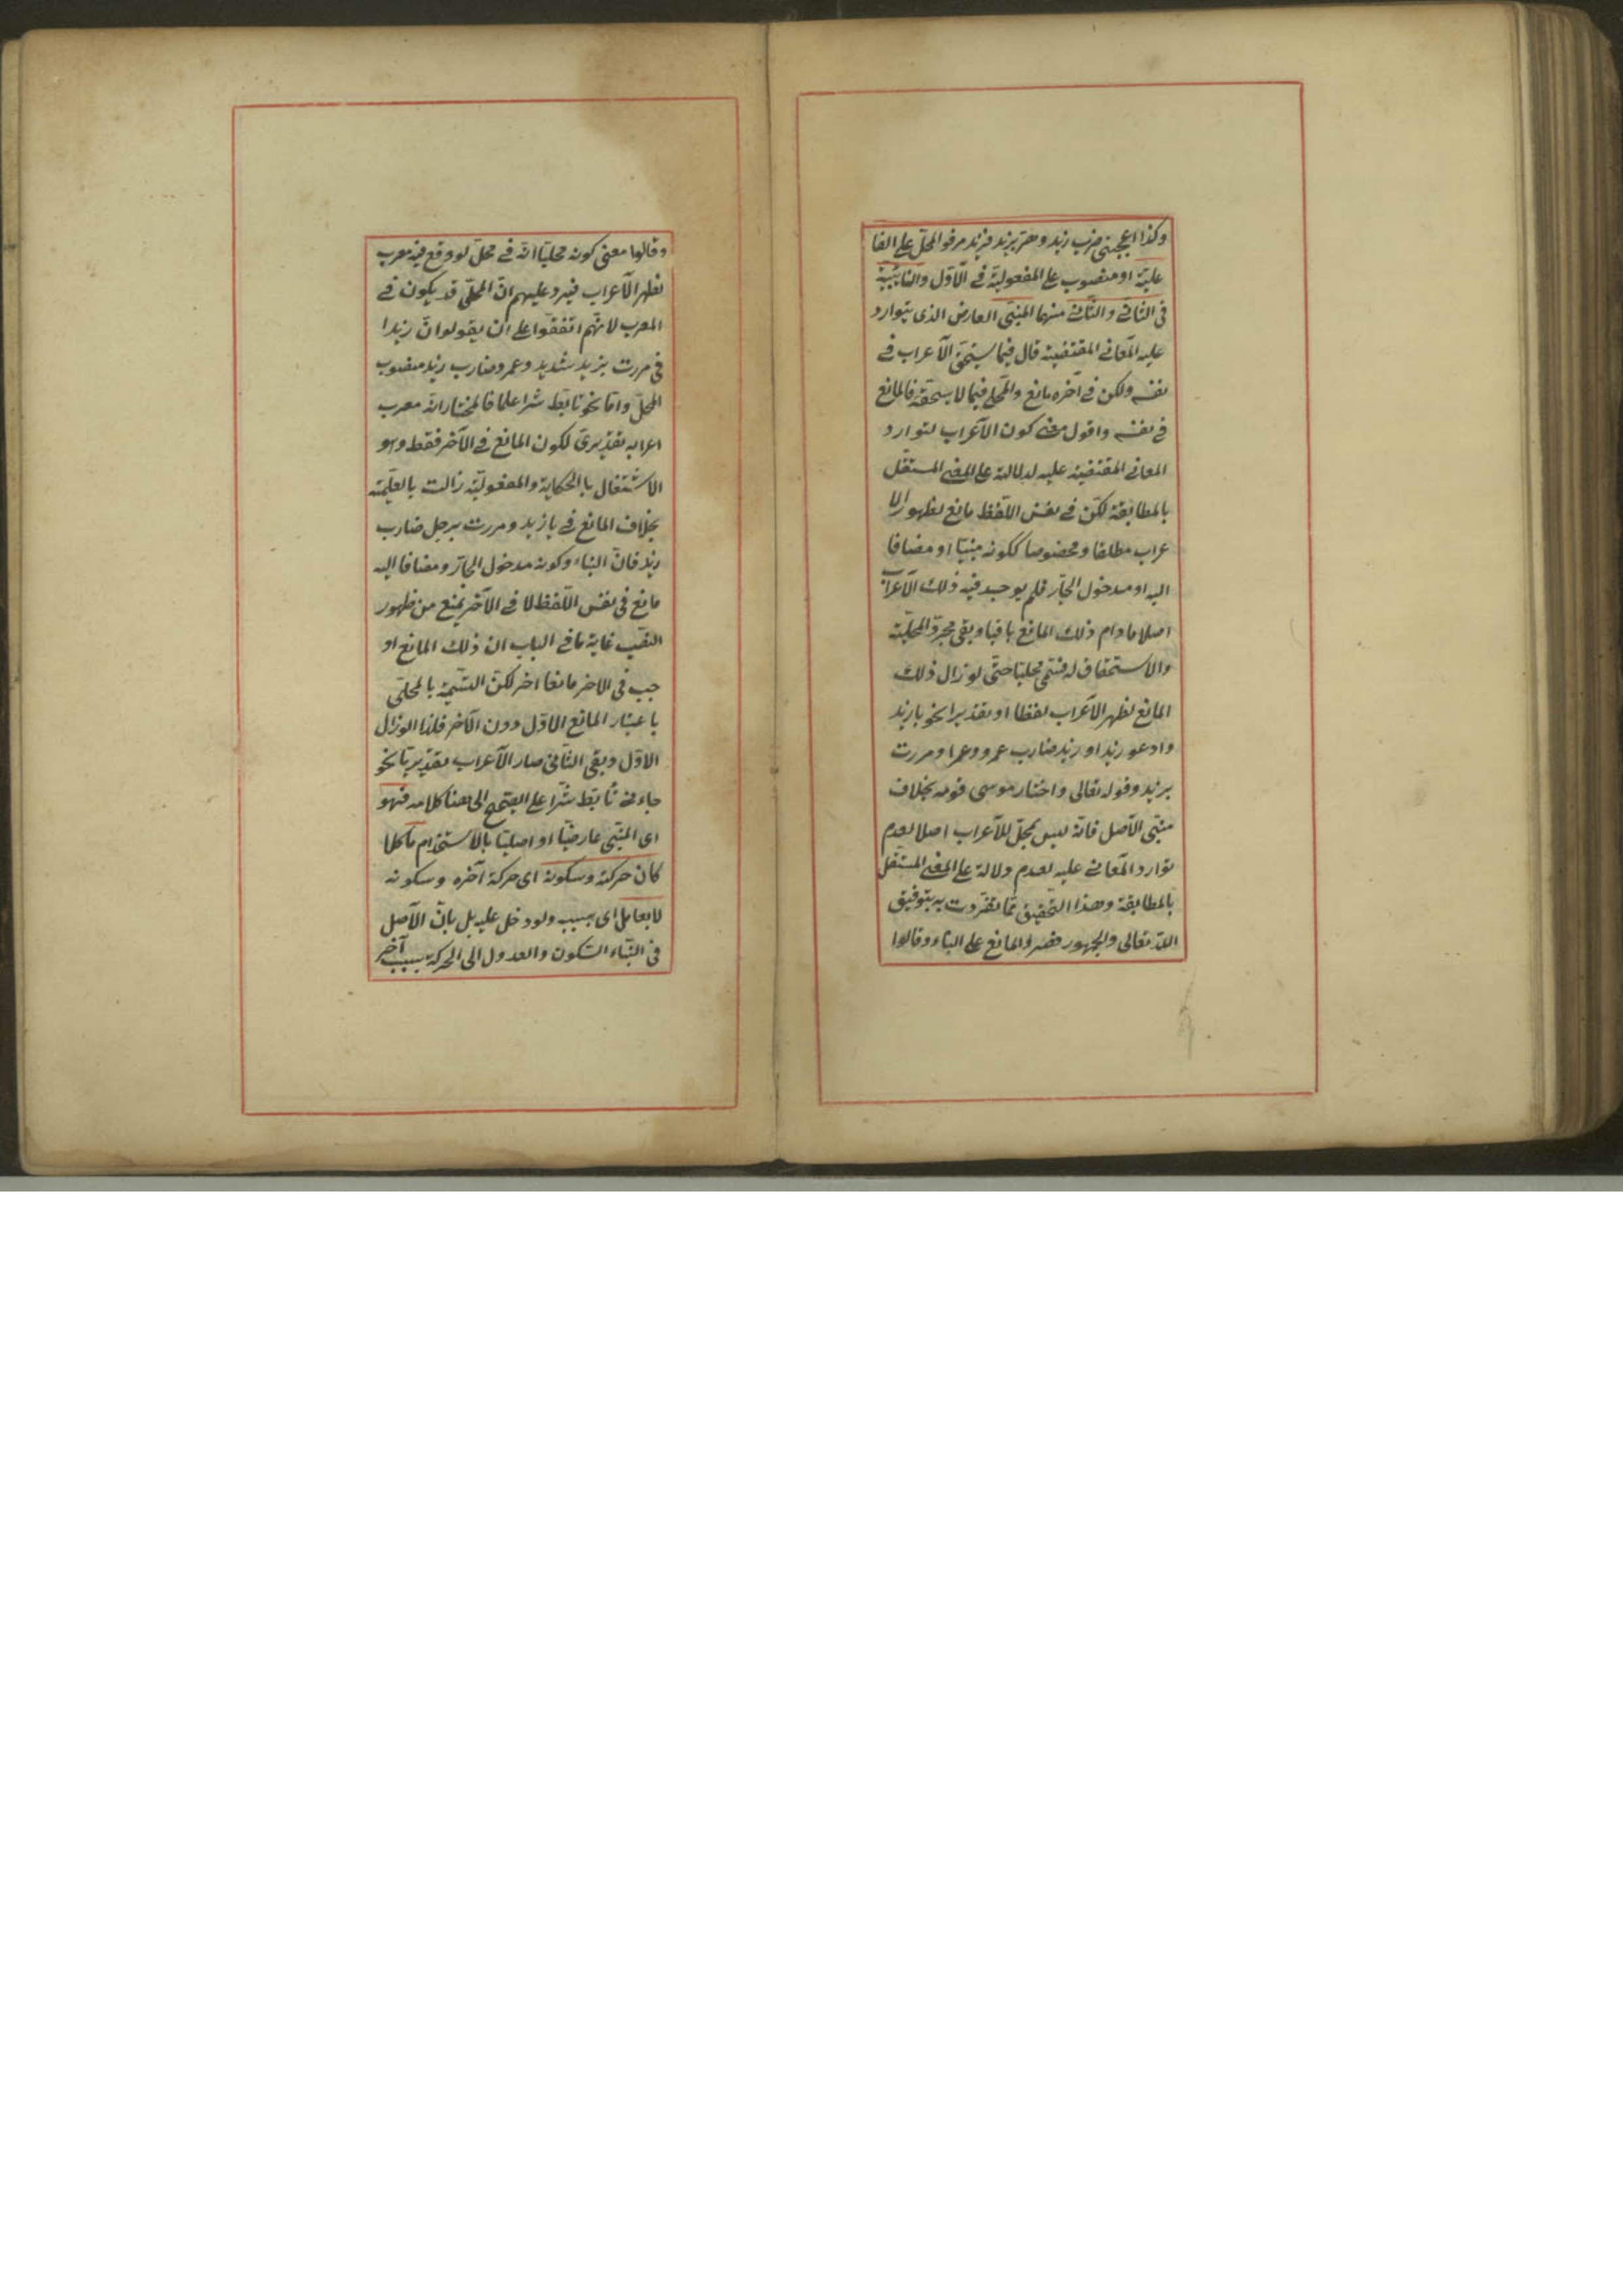 وكذا اعجبنى ضرب زيد ومر بزيد فزيد مرفوع المحل على الفا
علية او منصوب على المفعولية فى الاول والنائبية
فى الثانى والثانى منهما المبنى العارض الذى يتوارد
عليه المعانى المقتضية قال فيما يستحق الاعراب فى
نفسه ولكن فى آخره مانع والمحلى فيما لا يستحقه فالمانع
فى نفسه واقول معنى كون الاعراب لتوارد
المعانى المقتضية عليه لدلالته على المعنى المستقل
بالمطابقة لكن فى نفس اللفظ مانع لظهور الا
عراب مطلقا ومخصوصا ككونه مبنيا او مضافا
اليه او مدخول الجار فلم يوجد فيه ذلك الاعراب
اصلا مادام ذلك المانع باقيا وبقى مجرد المحلية
والاستحقاق له فسمى محليا حتى لو زال ذلك
المانع لظهر الاعراب لفظا او تقديرا نحو يا زيد
وادعو زيدا وزيد ضارب عمرو وعمرا ومررت
بزيد وقوله تعالى واختار موسى قومه بخلاف
مبنى الاصل فانه ليس بمحل للاعراب اصلا لعدم
توارد المعانى عليه لعدم دلالة على المعنى المستقل
بالمطابقة وهذا التحقيق مما تفردت به بتوفيق
الله تعالى والجمهور قصروا المانع على البناء وقالوا
وقالوا معنى كونه محليا انه فى محل لو وقع فيه معرب
لظهر الاعراب فيرد عليهم ان المحلى قد يكون فى
المعرب لانهم اتفقوا على ان يقولوا ان زيدا
فى مررت بزيد شديد وعمرو ضارب زيد منصوب
المحل واما نحو تابط شرا علما فالمختار انه معرب
اعرابه تقديرى لكون المانع فى الآخر فقط وهو
الاشتغال بالحكاية والمفعولية زالت بالعلمية
بخلاف المانع فى يا زيد ومررت برجل ضارب
زيد فان البناء وكونه مدخول الجار ومضافا اليه
مانع فى نفس اللفظ لا فى الآخر يمنع من ظهور
النصب غاية ما فى الباب ان ذلك المانع او
جب فى الاخر مانعا اخر لكن التسمية بالمحلى
باعتبار المانع الاول دون الآخر فلذا لو زال
الاول وبقى الثانى صار الاعراب تقديريا نحو
جاءنى تابط شرا على الصحيح الى هنا كلامه فهو
اى المبنى عارضيا او اصليا بالاستخدام ما كلا
كان حركته وسكونه اى حركة آخره وسكونه
لا بعامل اى بسبب ولو دخل عليه بل بان الاصل
فى البناء السكون والعدول الى الحركة بسبب آخر